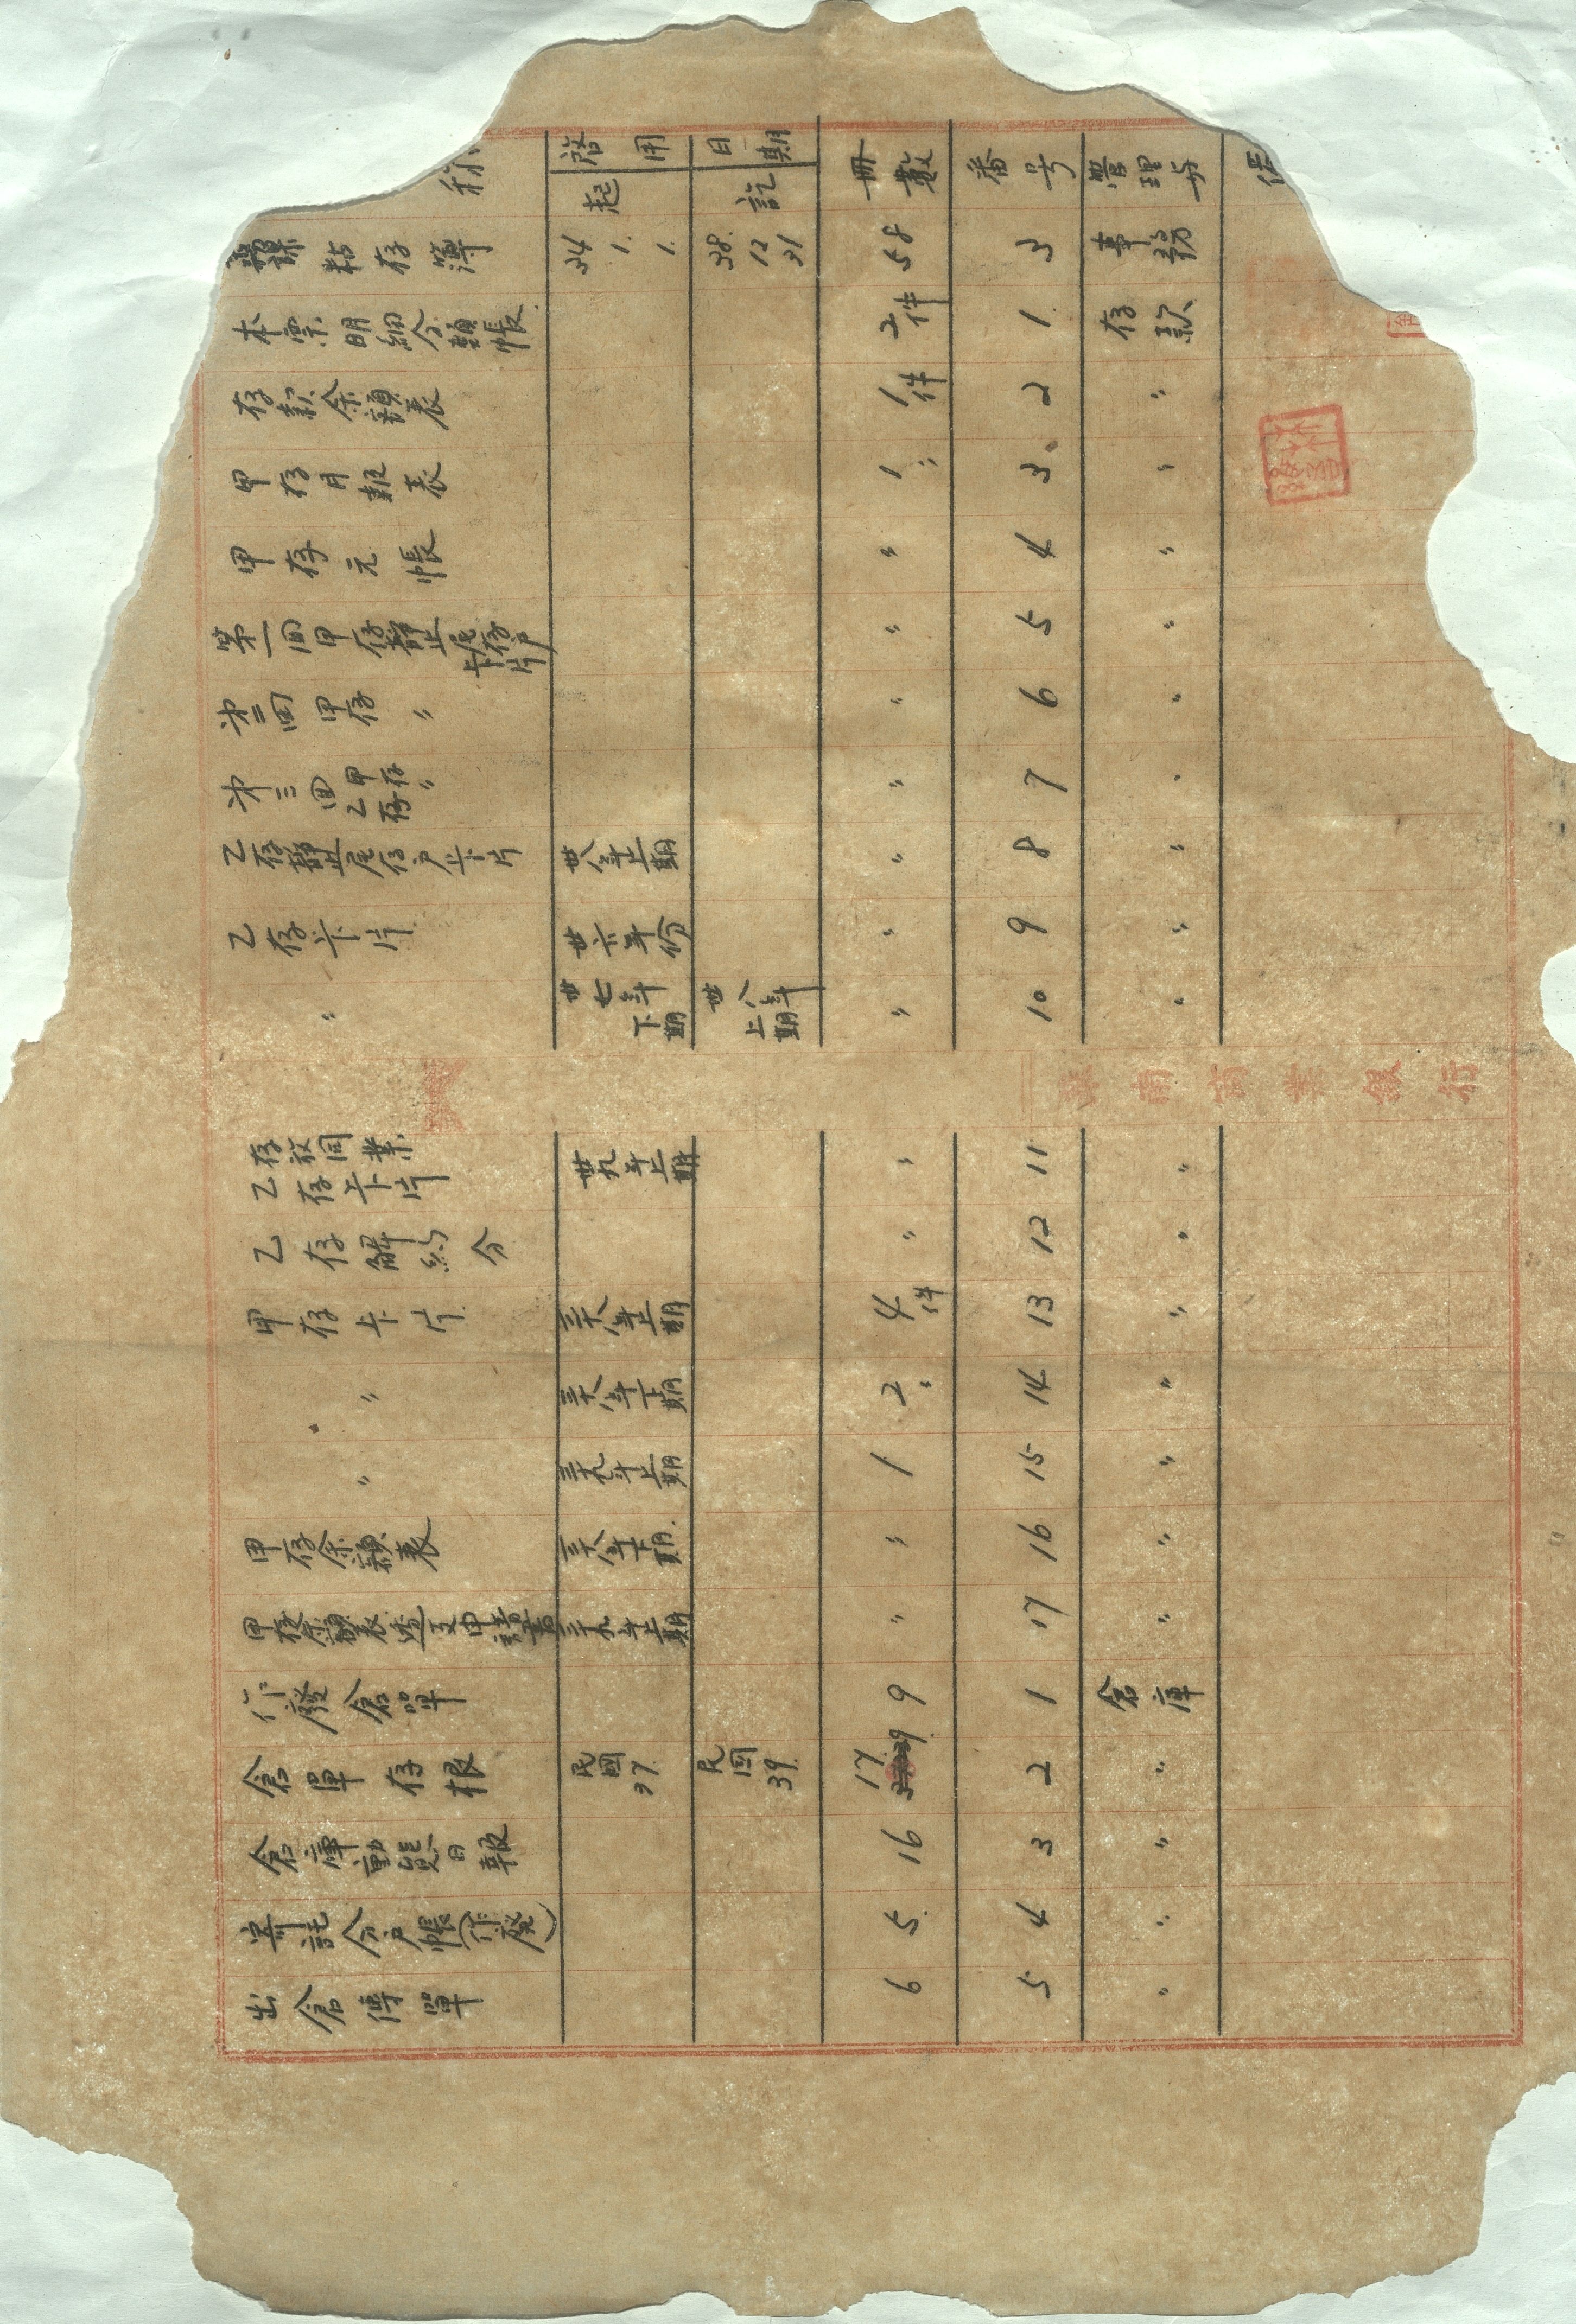 称 啓用日期 起 訖 冊數 番号 管理另 備
課 粘存簿 34 1. 1. 38. 12 31 58 3 事務
本票明細分類帳 2件 1. 存款
存款余額表 1件 2 〃
甲存月報表 1 〃 3 〃
甲存元帳 〃 4 〃
第一回甲存靜止尾存戶卡片 〃 5 〃
第二回甲存 〃 〃 6 〃
第三回甲存乙存 〃 〃 7 〃
乙存靜止尾存戶卡片 卅八年上期 〃 8 〃
乙存卡片 卅六年份 〃 9 〃
〃 卅七年下期 卅八年上期 〃 10 〃
商業銀行
存放同業乙存卡片 卅九年上期 〃 11 〃
乙存解約分 〃 12 〃
甲存卡片 三十八年上期 4件 13 〃
〃 三十八年下期 2 〃 14 〃
〃 三十九年上期 1 15 〃
甲存余額表 三十八年下期 〃 16 〃
甲存余額表透支申請書 三十九年上期 〃 17 〃
作廢倉單 9 1 倉庫
倉單存根 民國37. 民國39. 17 2 〃
倉庫動態日報 16 3 〃
寄託分戶帳(作廢) 5. 4 〃
出倉傳單 6 5 〃